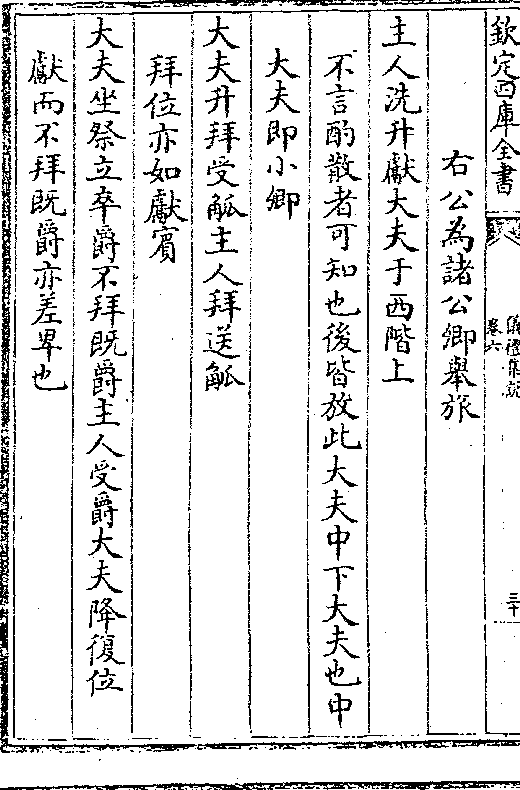 欽定四庫全書
儀禮集說
卷六
三十
右公為諸公卿舉旅
主人洗升獻大夫于西階上
不言酌散者可知也後皆放此大夫中下大夫也中
大夫即小卿
大夫升拜受觚主人拜送觚
拜位亦如獻賓
大夫坐祭立卒爵不拜既爵主人受爵大夫降復位
獻而不拜既爵亦差卑也